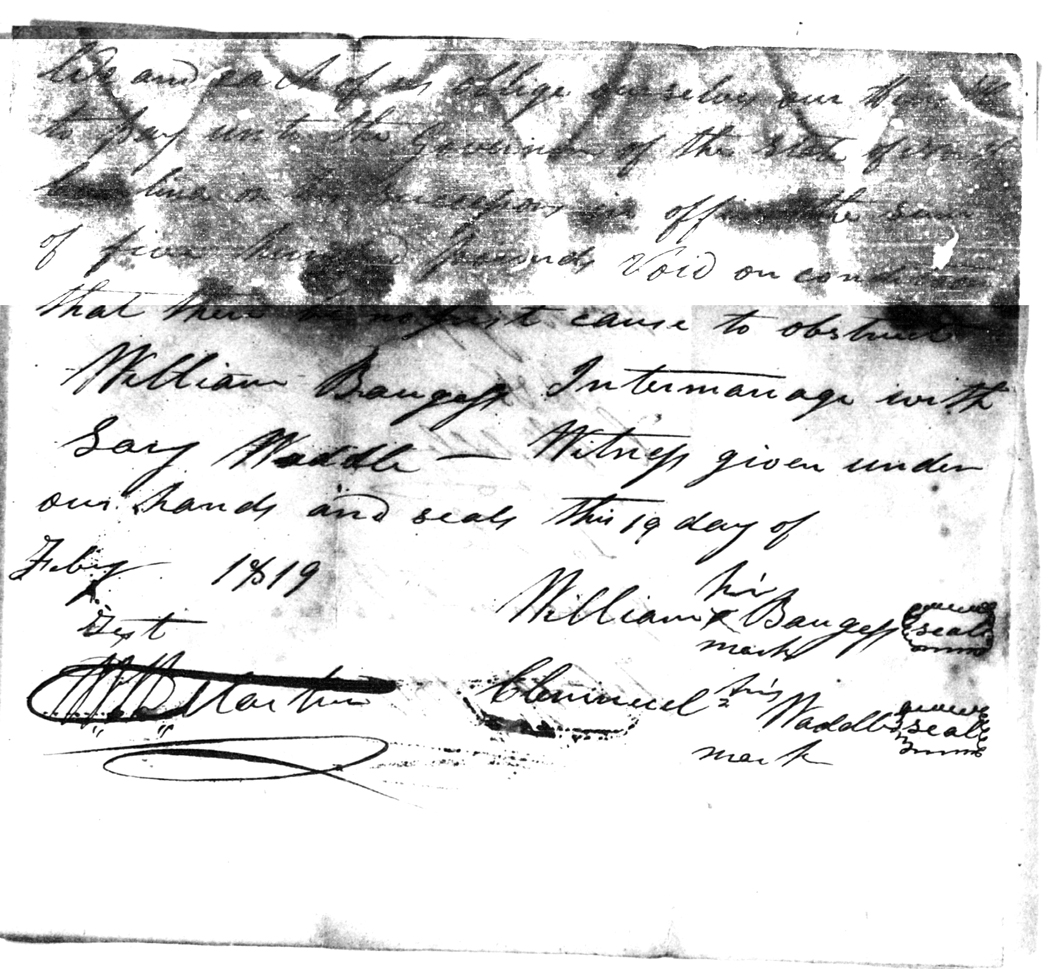 We and each of us oblige ourselves our Heirs &c
to pay unto the Governor of the State of North
Carolina or his Successors in office the Sum
of five hundred pounds Void on condition
that there be no just cause to obstruct
William Baugess Intermarriage with
Sary Waddle — Witness given under
our hands and seals this 19 day of
Feby 1819
William his x mark Baugess seal
Test
Wm Martin
Clemuel his mark Waddle seal